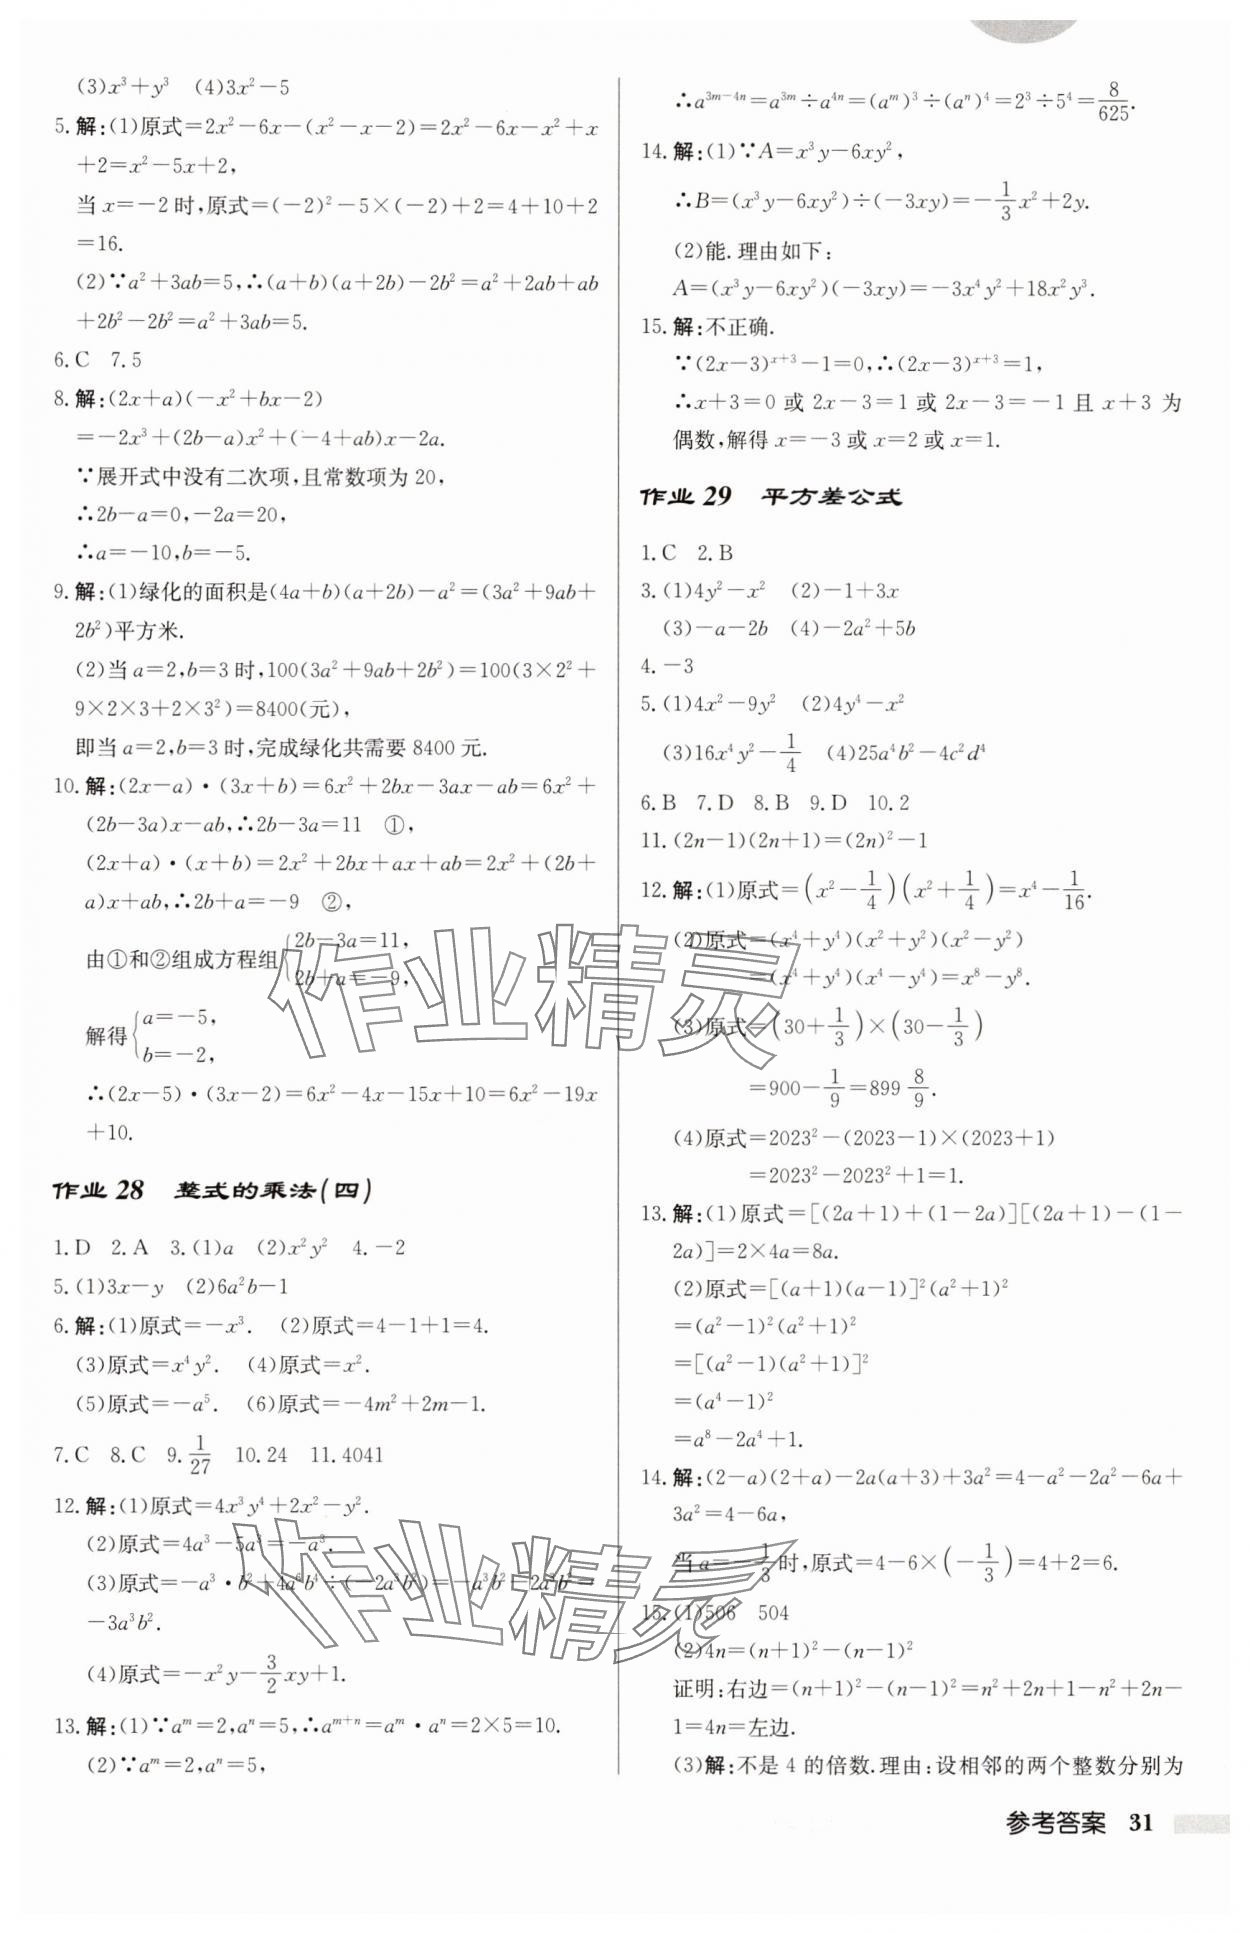 (3)x³+y³　(4)3x²-5
5.解:(1)原式=2x²-6x-(x²-x-2)=2x²-6x-x²+x
+2=x²-5x+2,
当x=-2时,原式=(-2)²-5×(-2)+2=4+10+2
=16.
(2)∵a²+3ab=5,∴(a+b)(a+2b)-2b²=a²+2ab+ab
+2b²-2b²=a²+3ab=5.
6.C　7.5
8.解:(2x+a)(-x²+bx-2)
=-2x³+(2b-a)x²+(-4+ab)x-2a.
∵展开式中没有二次项,且常数项为20,
∴2b-a=0,-2a=20,
∴a=-10,b=-5.
9.解:(1)绿化的面积是(4a+b)(a+2b)-a²=(3a²+9ab+
2b²)平方米.
(2)当a=2,b=3时,100(3a²+9ab+2b²)=100(3×2²+
9×2×3+2×3²)=8400(元),
即当a=2,b=3时,完成绿化共需要8400元.
10.解:(2x-a)·(3x+b)=6x²+2bx-3ax-ab=6x²+
(2b-3a)x-ab,∴2b-3a=11　①,
(2x+a)·(x+b)=2x²+2bx+ax+ab=2x²+(2b+
a)x+ab,∴2b+a=-9　②,
由①和②组成方程组{2b-3a=11,
2b+a=-9,
解得{a=-5,
b=-2,
∴(2x-5)·(3x-2)=6x²-4x-15x+10=6x²-19x
+10.
作业28　整式的乘法(四)
1.D　2.A　3.(1)a　(2)x²y²　4.-2
5.(1)3x-y　(2)6a²b-1
6.解:(1)原式=-x³.　(2)原式=4-1+1=4.
(3)原式=x⁴y².　(4)原式=x².
(5)原式=-a⁵.　(6)原式=-4m²+2m-1.
7.C　8.C　9.1/27　10.24　11.4041
12.解:(1)原式=4x³y⁴+2x²-y².
(2)原式=4a³-5a³=-a³.
(3)原式=-a³·b²+4a⁶b⁴÷(-2a³b²)=-a³b²-2a³b²=
-3a³b².
(4)原式=-x²y-3/2xy+1.
13.解:(1)∵aᵐ=2,aⁿ=5,∴aᵐ⁺ⁿ=aᵐ·aⁿ=2×5=10.
(2)∵aᵐ=2,aⁿ=5,
∴a³ᵐ⁻⁴ⁿ=a³ᵐ÷a⁴ⁿ=(aᵐ)³÷(aⁿ)⁴=2³÷5⁴=8/625.
14.解:(1)∵A=x³y-6xy²,
∴B=(x³y-6xy²)÷(-3xy)=-1/3x²+2y.
(2)能.理由如下:
A=(x³y-6xy²)(-3xy)=-3x⁴y²+18x²y³.
15.解:不正确.
∵(2x-3)ˣ⁺³-1=0,∴(2x-3)ˣ⁺³=1,
∴x+3=0或2x-3=1或2x-3=-1且x+3为
偶数,解得x=-3或x=2或x=1.
作业29　平方差公式
1.C　2.B
3.(1)4y²-x²　(2)-1+3x
(3)-a-2b　(4)-2a²+5b
4.-3
5.(1)4x²-9y²　(2)4y⁴-x²
(3)16x⁴y²-1/4　(4)25a⁴b²-4c²d⁴
6.B　7.D　8.B　9.D　10.2
11.(2n-1)(2n+1)=(2n)²-1
12.解:(1)原式=(x²-1/4)(x²+1/4)=x⁴-1/16.
(2)原式=(x⁴+y⁴)(x²+y²)(x²-y²)
=(x⁴+y⁴)(x⁴-y⁴)=x⁸-y⁸.
(3)原式=(30+1/3)×(30-1/3)
=900-1/9=899 8/9.
(4)原式=2023²-(2023-1)×(2023+1)
=2023²-2023²+1=1.
13.解:(1)原式=[(2a+1)+(1-2a)][(2a+1)-(1-
2a)]=2×4a=8a.
(2)原式=[(a+1)(a-1)]²(a²+1)²
=(a²-1)²(a²+1)²
=[(a²-1)(a²+1)]²
=(a⁴-1)²
=a⁸-2a⁴+1.
14.解:(2-a)(2+a)-2a(a+3)+3a²=4-a²-2a²-6a+
3a²=4-6a,
当a=-1/3时,原式=4-6×(-1/3)=4+2=6.
15.(1)506　504
(2)4n=(n+1)²-(n-1)²
证明:右边=(n+1)²-(n-1)²=n²+2n+1-n²+2n-
1=4n=左边.
(3)解:不是4的倍数.理由:设相邻的两个整数分别为
参考答案　31
作业精灵
作业精灵